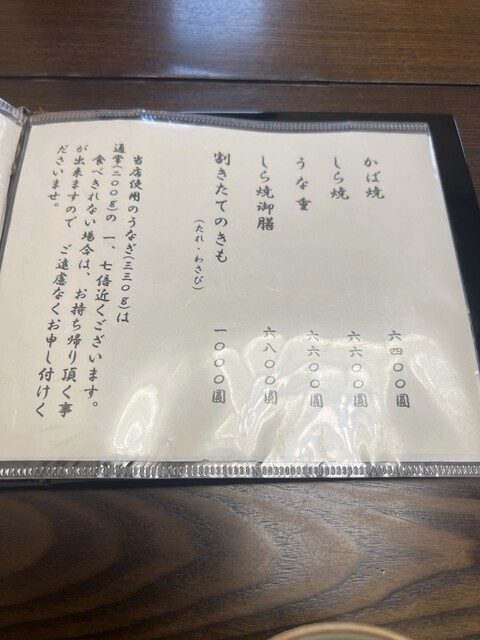 かば焼 六四〇〇圓
しら焼 六六〇〇圓
うな重 六六〇〇圓
しら焼御膳 六八〇〇圓
割きたてのきも 一〇〇〇圓
(たれ・わさび)
当店使用のうなぎ(三三〇g)は
通常(二〇〇g)の一、七倍近くございます。
食べきれない場合は、お持ち帰り頂く事
が出来ますので ご遠慮なくお申し付けく
ださいませ。